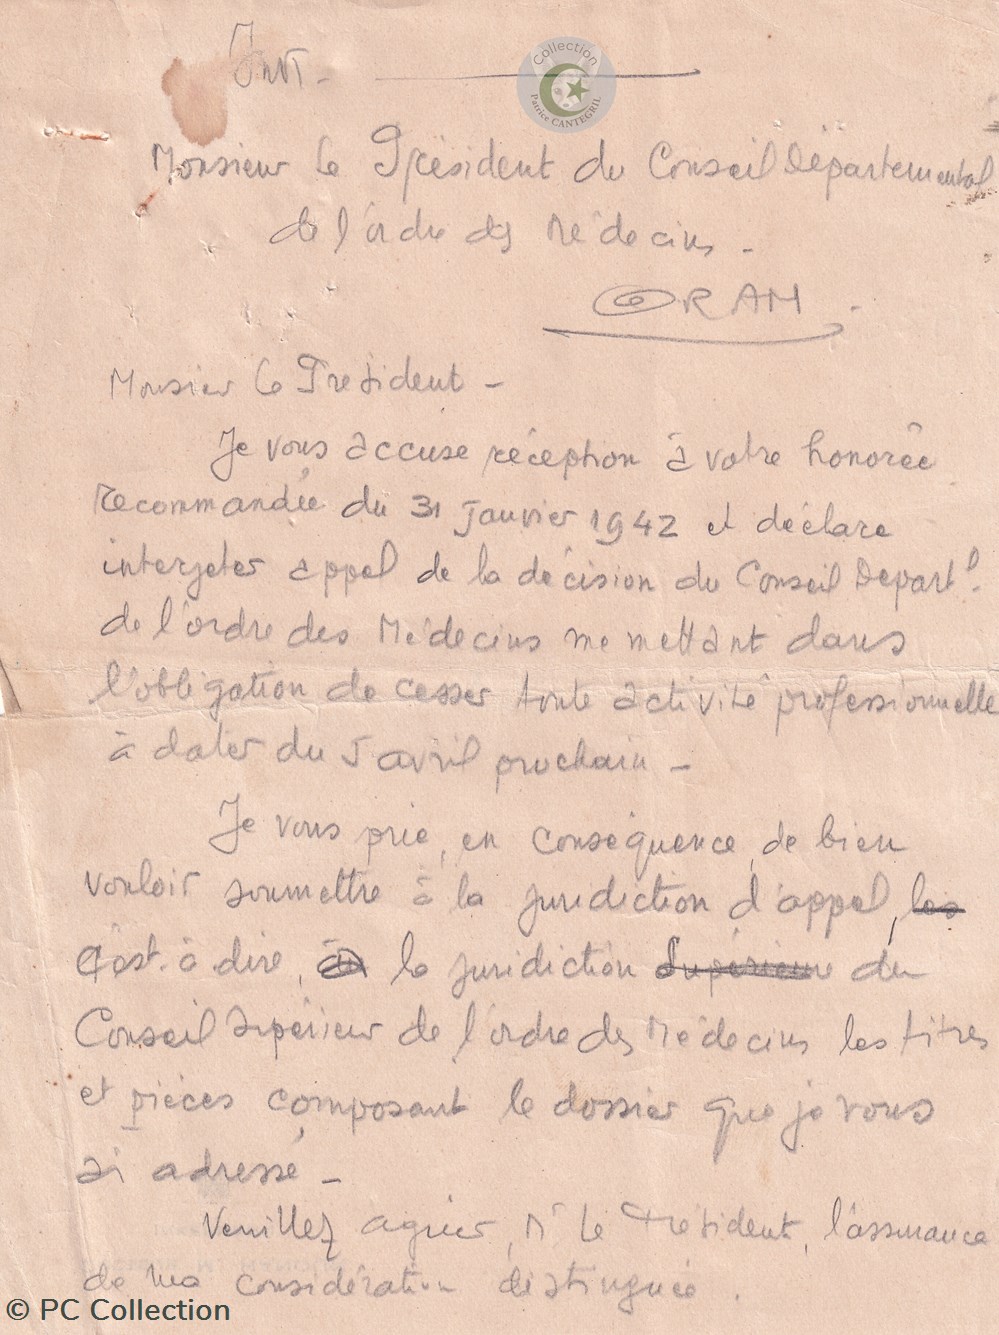 Collection
Patrice CANTEGRIL
Monsieur le Président du Conseil Départemental
de l'ordre des Médecins -
ORAN.
Monsieur le Président -
Je vous accuse réception à votre honorée
recommandée du 31 Janvier 1942 et déclare
interjeter appel de la décision du Conseil Départl.
de l'ordre des Médecins me mettant dans
l'obligation de cesser toute activité professionnelle
à dater du 5 avril prochain -
Je vous prie, en conséquence, de bien
vouloir soumettre à la juridiction d'appel, les
c'est-à dire, à la juridiction Supérieure du
Conseil Supérieur de l'ordre des Médecins les titres
et pièces composant le dossier que je vous
ai adressé -
Veuillez agréer, Mr le Président, l'assurance
de ma considération distinguée.
© PC Collection